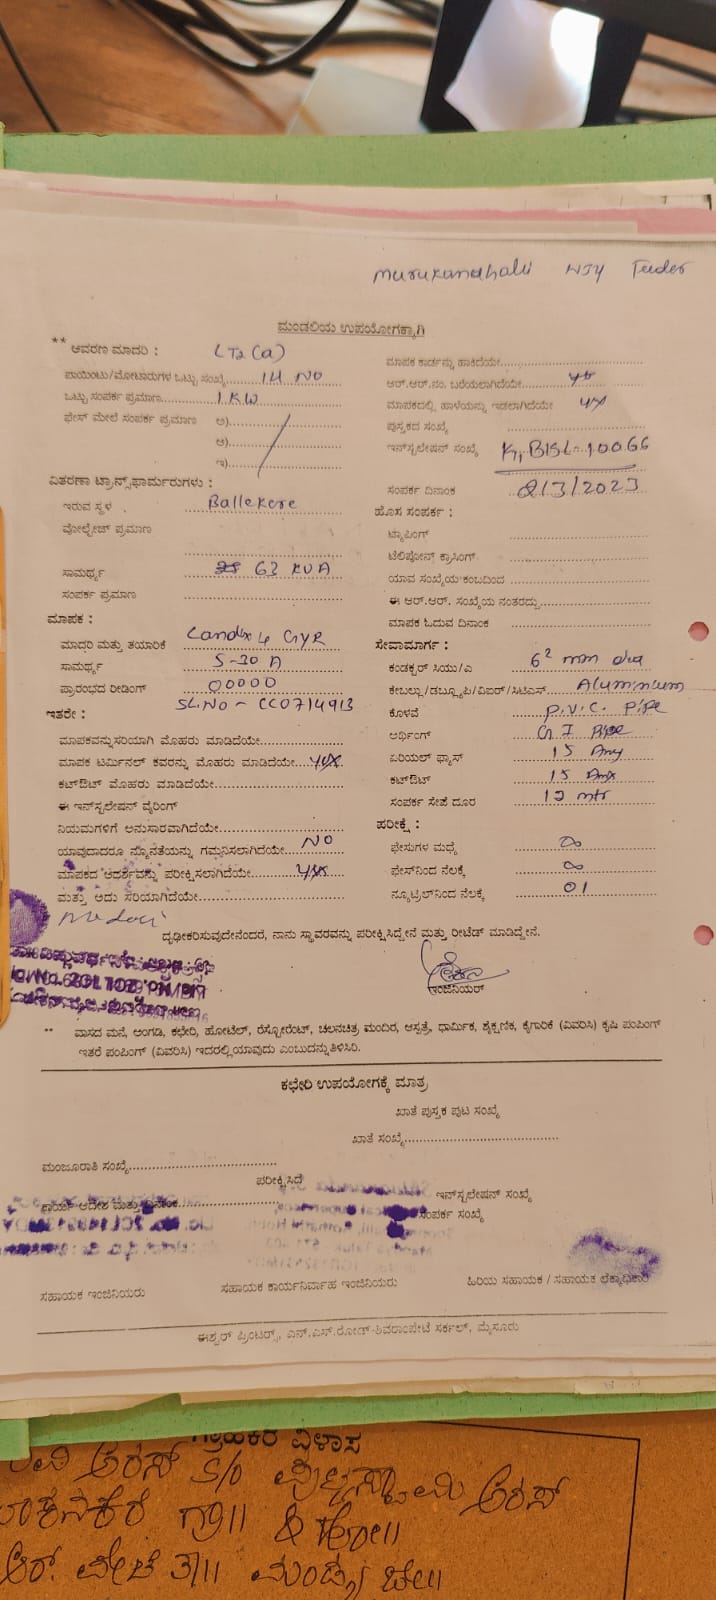 Murukanahalli NJY Feeder
ಮಂಡಲಿಯ ಉಪಯೋಗಕ್ಕಾಗಿ
** ಆವರಣ ಮಾದರಿ : LT2(a)
ಪಾಯಿಂಟು/ಮೋಟಾರುಗಳ ಒಟ್ಟು ಸಂಖ್ಯೆ 14 NO
ಒಟ್ಟು ಸಂಪರ್ಕ ಪ್ರಮಾಣ 1 KW
ಫೇಸ್ ಮೇಲೆ ಸಂಪರ್ಕ ಪ್ರಮಾಣ ಅ)
ಆ)
ಇ)
ವಿತರಣಾ ಟ್ರಾನ್ಸ್‌ಫಾರ್ಮರುಗಳು :
ಇರುವ ಸ್ಥಳ Ballekere
ವೋಲ್ಟೇಜ್ ಪ್ರಮಾಣ
ಸಾಮರ್ಥ್ಯ 63 KVA
ಸಂಪರ್ಕ ಪ್ರಮಾಣ
ಮಾಪಕ :
ಮಾದರಿ ಮತ್ತು ತಯಾರಿಕೆ Landis & GYR
ಸಾಮರ್ಥ್ಯ 5-30 A
ಪ್ರಾರಂಭದ ರೀಡಿಂಗ್ 00000
ಇತರೇ : SL.NO - CC0714913
ಮಾಪಕವನ್ನು ಸರಿಯಾಗಿ ಮೊಹರು ಮಾಡಿದೆಯೇ
ಮಾಪಕ ಟರ್ಮಿನಲ್ ಕವರನ್ನು ಮೊಹರು ಮಾಡಿದೆಯೇ yes
ಕಟ್‌ಔಟ್ ಮೊಹರು ಮಾಡಿದೆಯೇ
ಈ ಇನ್‌ಸ್ಟಲೇಷನ್ ವೈರಿಂಗ್
ನಿಯಮಗಳಿಗೆ ಅನುಸಾರವಾಗಿದೆಯೇ
ಯಾವುದಾದರೂ ನ್ಯೂನತೆಯನ್ನು ಗಮನಿಸಲಾಗಿದೆಯೇ NO
ಮಾಪಕದ ಆದರ್ಶವನ್ನು ಪರೀಕ್ಷಿಸಲಾಗಿದೆಯೇ yes
ಮತ್ತು ಅದು ಸರಿಯಾಗಿದೆಯೇ
ಮಾಪಕ ಕಾರ್ಡನ್ನು ಹಾಕಿದೆಯೇ
ಆರ್.ಆರ್.ನಂ. ಬರೆಯಲಾಗಿದೆಯೇ yes
ಮಾಪಕದಲ್ಲಿ ಹಾಳೆಯನ್ನು ಇಡಲಾಗಿದೆಯೇ yes
ಪುಸ್ತಕದ ಸಂಖ್ಯೆ
ಇನ್‌ಸ್ಟಲೇಷನ್ ಸಂಖ್ಯೆ 10066
ಸಂಪರ್ಕ ದಿನಾಂಕ 8/3/2023
ಹೊಸ ಸಂಪರ್ಕ :
ಟ್ಯಾಪಿಂಗ್
ಟೆಲಿಫೋನ್ ಕ್ರಾಸಿಂಗ್
ಯಾವ ಸಂಖ್ಯೆಯ ಕಂಬದಿಂದ
ಈ ಆರ್.ಆರ್. ಸಂಖ್ಯೆಯ ನಂತರದ್ದು
ಮಾಪಕ ಓದುವ ದಿನಾಂಕ
ಸೇವಾಮಾರ್ಗ :
ಕಂಡಕ್ಟರ್ ಸಿಯು/ಎ 6² mm dia
ಕೇಬಲ್ಲು/ಡಬ್ಲ್ಯೂಪಿ/ವಿಐಆರ್/ಸಿಟಿಎಸ್ Aluminium
ಕೊಳವೆ P.V.C. Pipe
ಅರ್ಥಿಂಗ್ G.I Pipe
ಏರಿಯಲ್ ಫ್ಯೂಸ್ 15 Amp
ಕಟ್‌ಔಟ್ 15 Amp
ಸಂಪರ್ಕ ಸೇವೆ ದೂರ 12 mtr
ಪರೀಕ್ಷೆ :
ಫೇಸುಗಳ ಮಧ್ಯೆ ∞
ಫೇಸ್‌ನಿಂದ ನೆಲಕ್ಕೆ ∞
ನ್ಯೂಟ್ರಲ್‌ನಿಂದ ನೆಲಕ್ಕೆ 01
ದೃಢೀಕರಿಸುವುದೇನೆಂದರೆ, ನಾನು ಸ್ಥಾವರವನ್ನು ಪರೀಕ್ಷಿಸಿದ್ದೇನೆ ಮತ್ತು ರೀಟೆಡ್ ಮಾಡಿದ್ದೇನೆ.
ಇಂಜಿನಿಯರ್
** ವಾಸದ ಮನೆ, ಅಂಗಡಿ, ಕಛೇರಿ, ಹೋಟೆಲ್, ರೆಸ್ಟೋರೆಂಟ್, ಚಲನಚಿತ್ರ ಮಂದಿರ, ಆಸ್ಪತ್ರೆ, ಧಾರ್ಮಿಕ, ಶೈಕ್ಷಣಿಕ, ಕೈಗಾರಿಕೆ (ವಿವರಿಸಿ) ಕೃಷಿ ಪಂಪಿಂಗ್
ಇತರೆ ಪಂಪಿಂಗ್ (ವಿವರಿಸಿ) ಇದರಲ್ಲಿ ಯಾವುದು ಎಂಬುದನ್ನು ತಿಳಿಸಿರಿ.
ಕಛೇರಿ ಉಪಯೋಗಕ್ಕೆ ಮಾತ್ರ
ಖಾತೆ ಪುಸ್ತಕ ಪುಟ ಸಂಖ್ಯೆ
ಖಾತೆ ಸಂಖ್ಯೆ
ಮಂಜೂರಾತಿ ಸಂಖ್ಯೆ
ಪರೀಕ್ಷಿಸಿದೆ
ಇನ್‌ಸ್ಟಲೇಷನ್ ಸಂಖ್ಯೆ
ಕಾರ್ಯ ಆದೇಶ ಮತ್ತು ದಿನಾಂಕ
ಸಂಪರ್ಕ ಸಂಖ್ಯೆ
ಸಹಾಯಕ ಇಂಜಿನಿಯರು ಸಹಾಯಕ ಕಾರ್ಯನಿರ್ವಾಹ ಇಂಜಿನಿಯರು ಹಿರಿಯ ಸಹಾಯಕ / ಸಹಾಯಕ ಲೆಕ್ಕಾಧಿಕಾರಿ
ಈಶ್ವರ್ ಪ್ರಿಂಟರ್ಸ್, ಎನ್.ಎಸ್.ರೋಡ್-ಶಿವರಾಂಪೇಟೆ ಸರ್ಕಲ್, ಮೈಸೂರು
ಗ್ರಾಹಕರ ವಿಳಾಸ
ಅರಸ್ S/o ಪುಟ್ಟಸ್ವಾಮಿ ಅರಸ್
ಗ್ರಾ|| & ಹೋ||
ಆರ್. ಪೇಟೆ ತಾ|| ಮಂಡ್ಯ ಜಿಲ್ಲೆ||